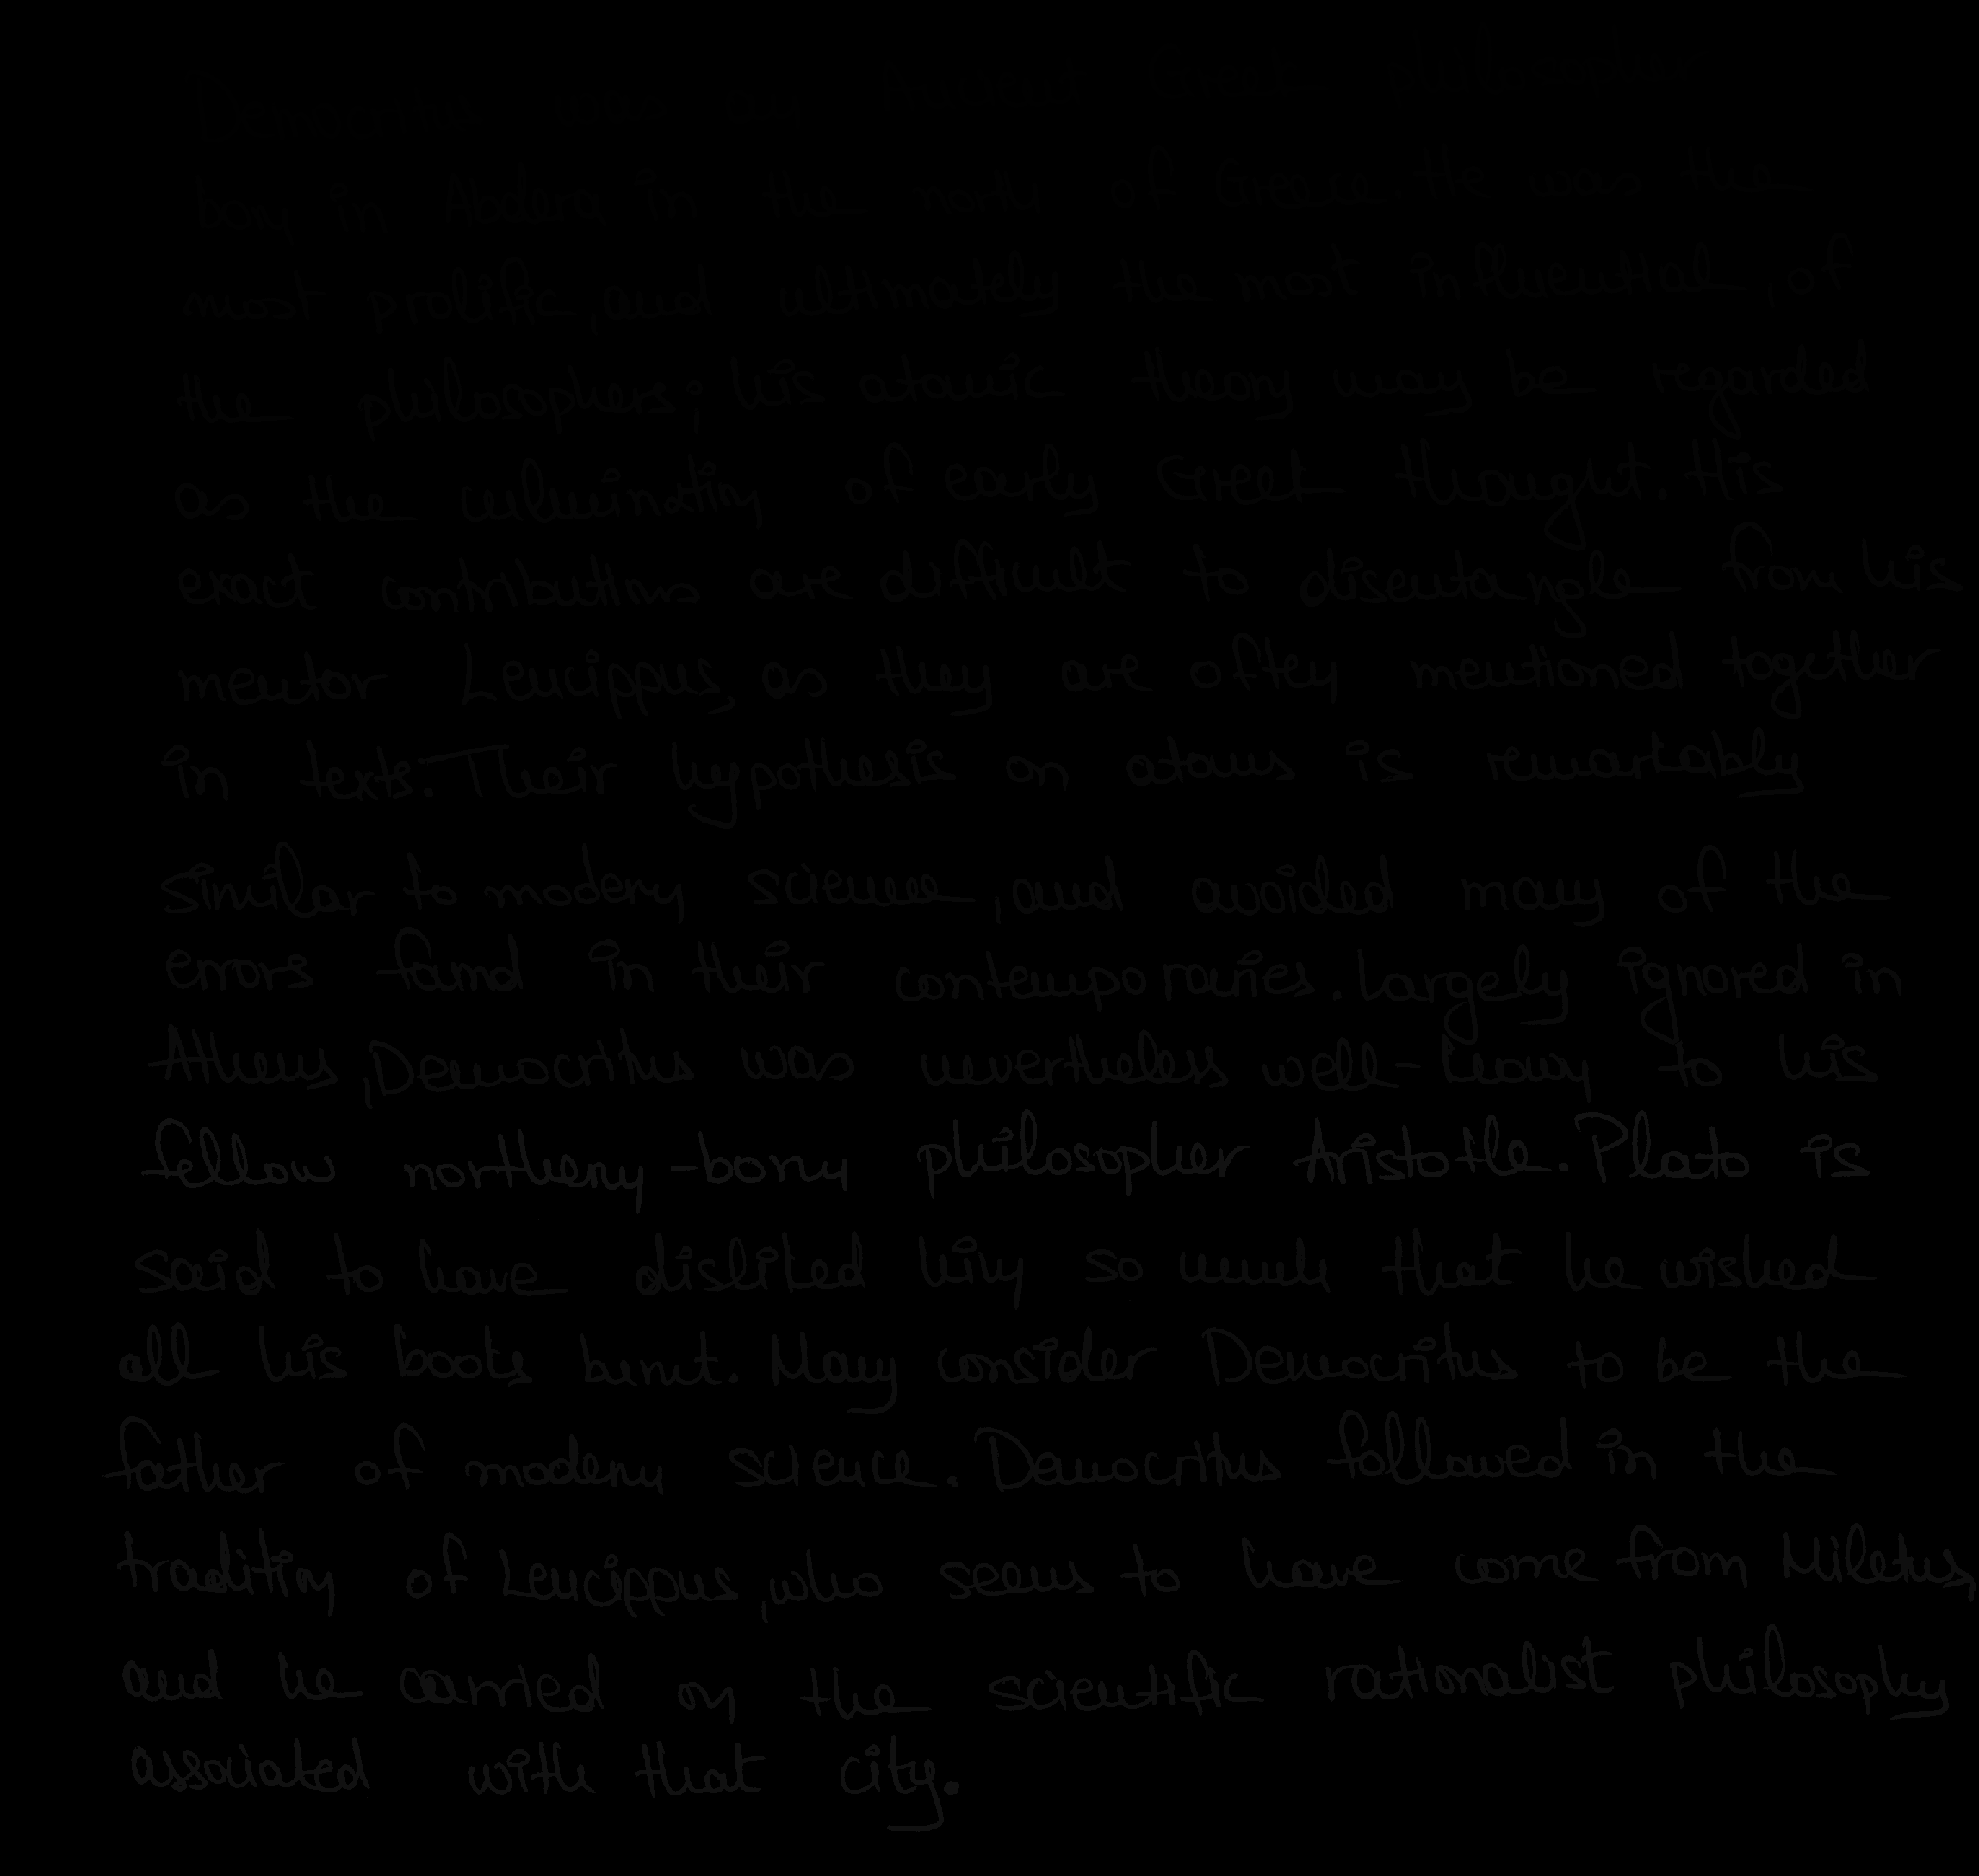 Democritus was an Ancient Greek philosopher
born in Abdera in the north of Greece. He was the
most prolific, and ultimately the most influential, of
the philosophers; his atomic theory may be regarded
as the culmination of early Greek thought. His
exact contributions are difficult to disentangle from his
mentor Leucippus, as they are often mentioned together
in texts. Their hypothesis on atoms is remarkably
similar to modern science, and avoided many of the
errors found in their contemporaries. Largely ignored in
Athens, Democritus was nevertheless well-known to his
fellow northern-born philosopher Aristotle. Plato is
said to have disliked him so much that he wished
all his books burnt. Many consider Democritus to be the
father of modern science. Democritus followed in the
tradition of Leucippus, who seems to have come from Miletus,
and he carried on the scientific rationalist philosophy
associated with that city.